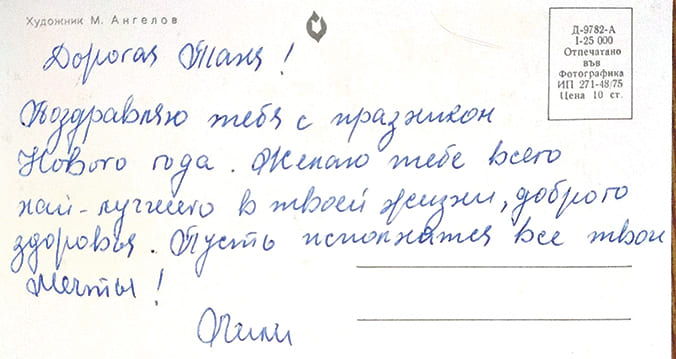 Художник М. Ангелов
Д-9782-А
I-25 000
Отпечатано
във
Фотографика
ИП 271-48/75
Цена 10 ст.
Дорогая Таня!
Поздравляю тебя с празникон
Нового года. Желаю тебе всего
най-лучшего в твоей жизни, доброго
здоровья. Пусть исполнятся все твои
мечты!